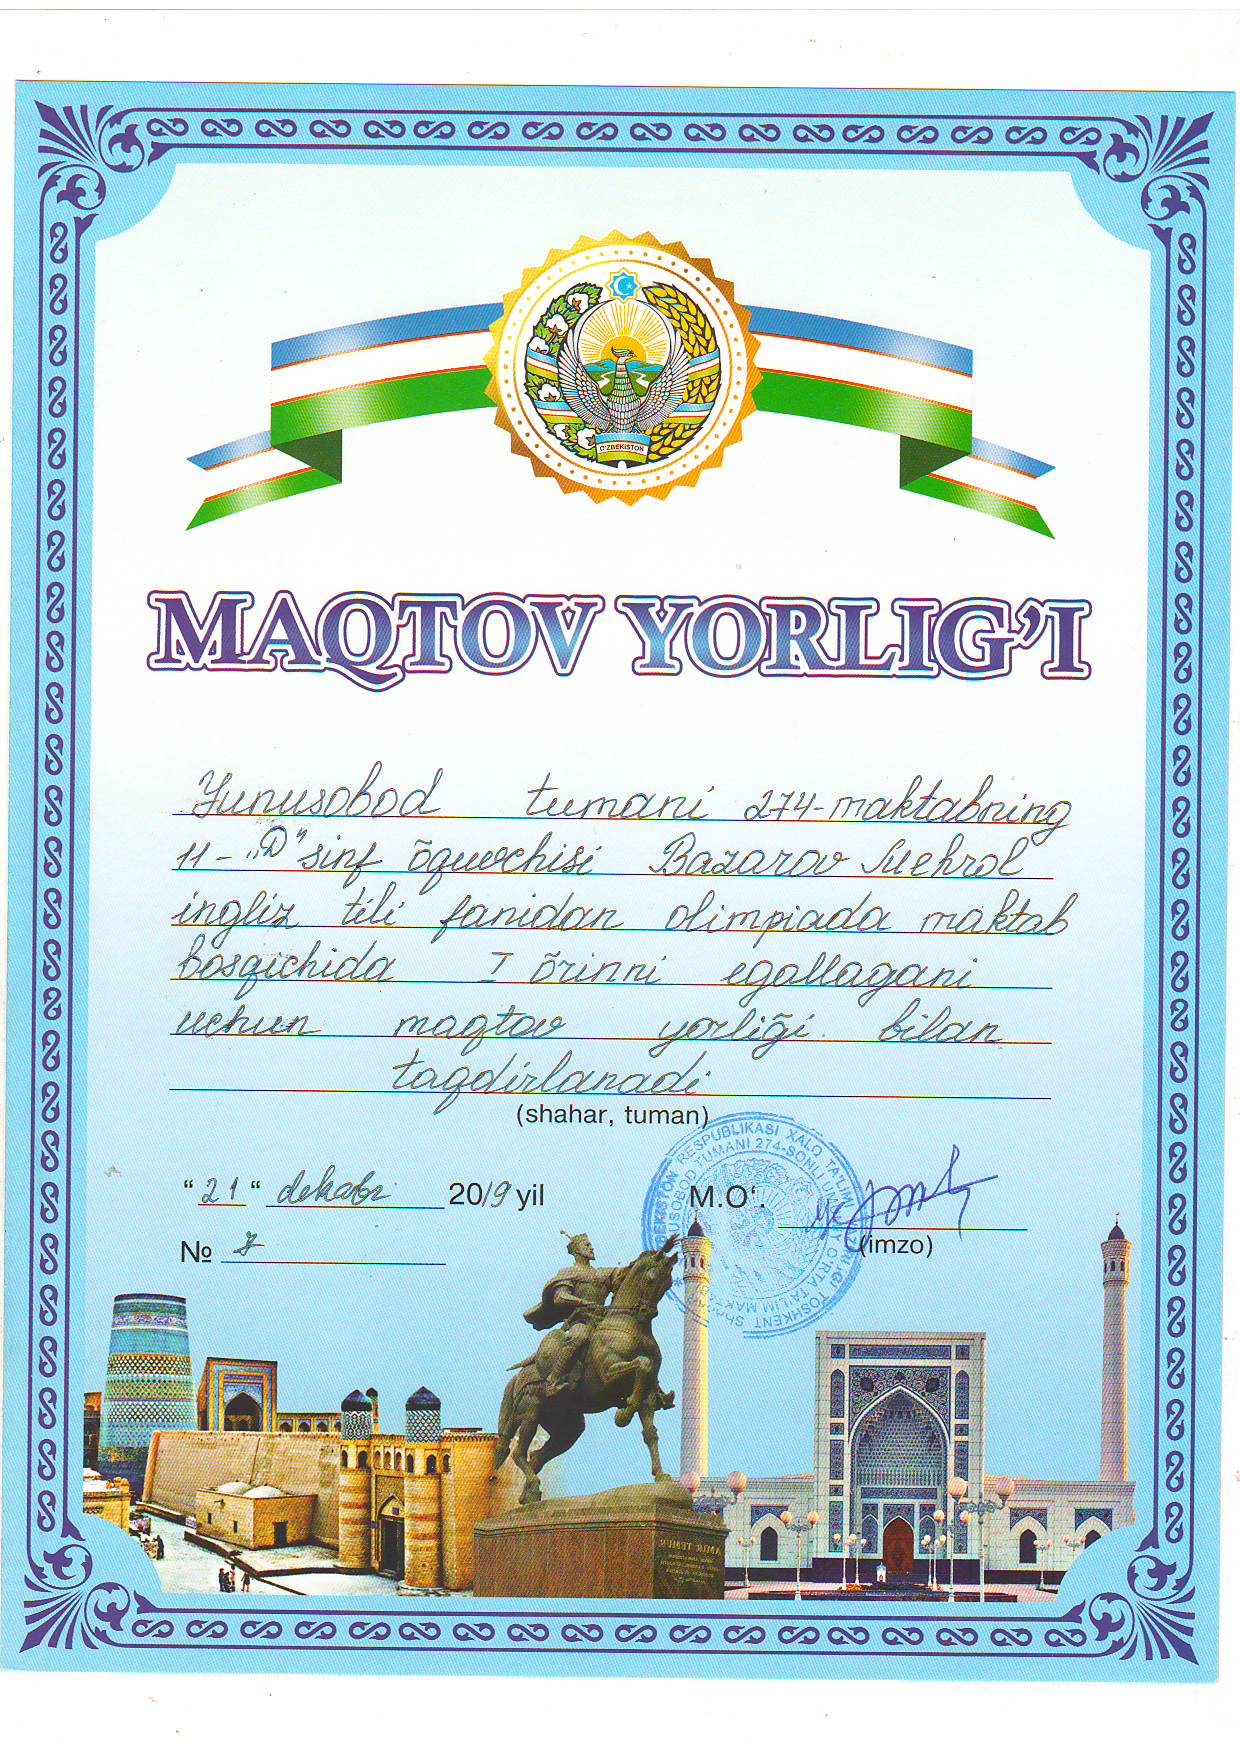 O'ZBEKISTON
MAQTOV YORLIG'I
Yunusobod tumani 274-maktabning
11-„D" sinf õquvchisi Bazarov Mehrol
ingliz tili fanidan olimpiada maktab
bosqichida I õrinni egallagani
uchun maqtov yorliği bilan
taqdirlanadi
(shahar, tuman)
“ 21 “ dekabr 2019 yil
M.O‘.
(imzo)
№ 7
RESPUBLIKASI XALQ TA'LIMI
TUMANI 274-SONLI
TOSHKENT
O'RTA TA'LIM MAKTABI
AMIR TEMUR